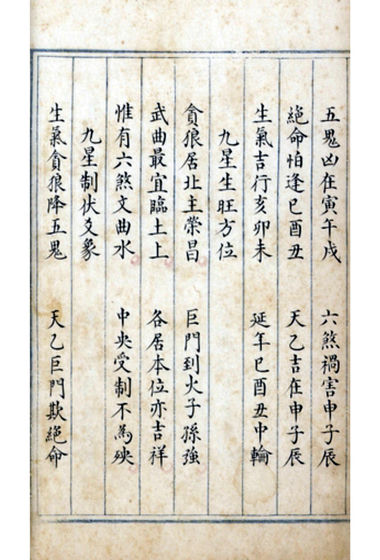 五鬼凶在寅午戌　六煞禍害申子辰
絕命怕逢巳酉丑　天乙吉在申子辰
生氣吉行亥卯未　延年巳酉丑中輪
九星生旺方位
貪狼居北主榮昌　巨門到火子孫強
武曲最宜臨土上　各居本位亦吉祥
惟有六煞文曲水　中央受制不為殃
九星制伏爻象
生氣貪狼降五鬼　天乙巨門欺絕命